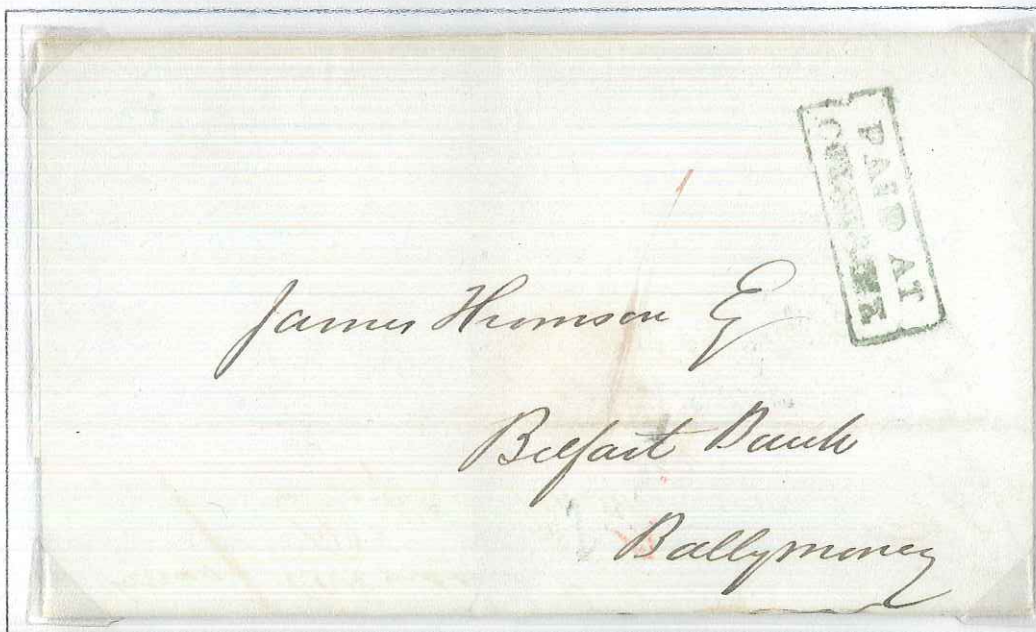 PAID AT
1
James Thomson Esq
Belfast Bank
Ballymoney